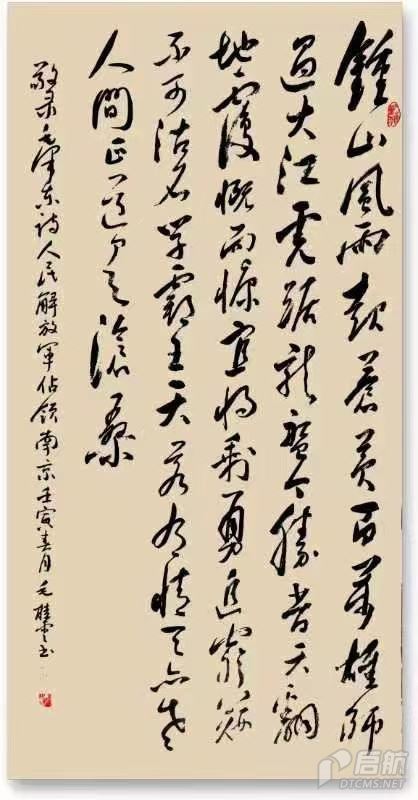 鍾山風雨起蒼黄百萬雄師
過大江虎踞龍盤今勝昔天翻
地覆慨而慷宜將剩勇追窮寇
不可沽名學霸王天若有情天亦老
人間正道是滄桑
敬录毛澤東詩人民解放軍佔領南京壬寅春月毛書
启航
DTCMS.NET